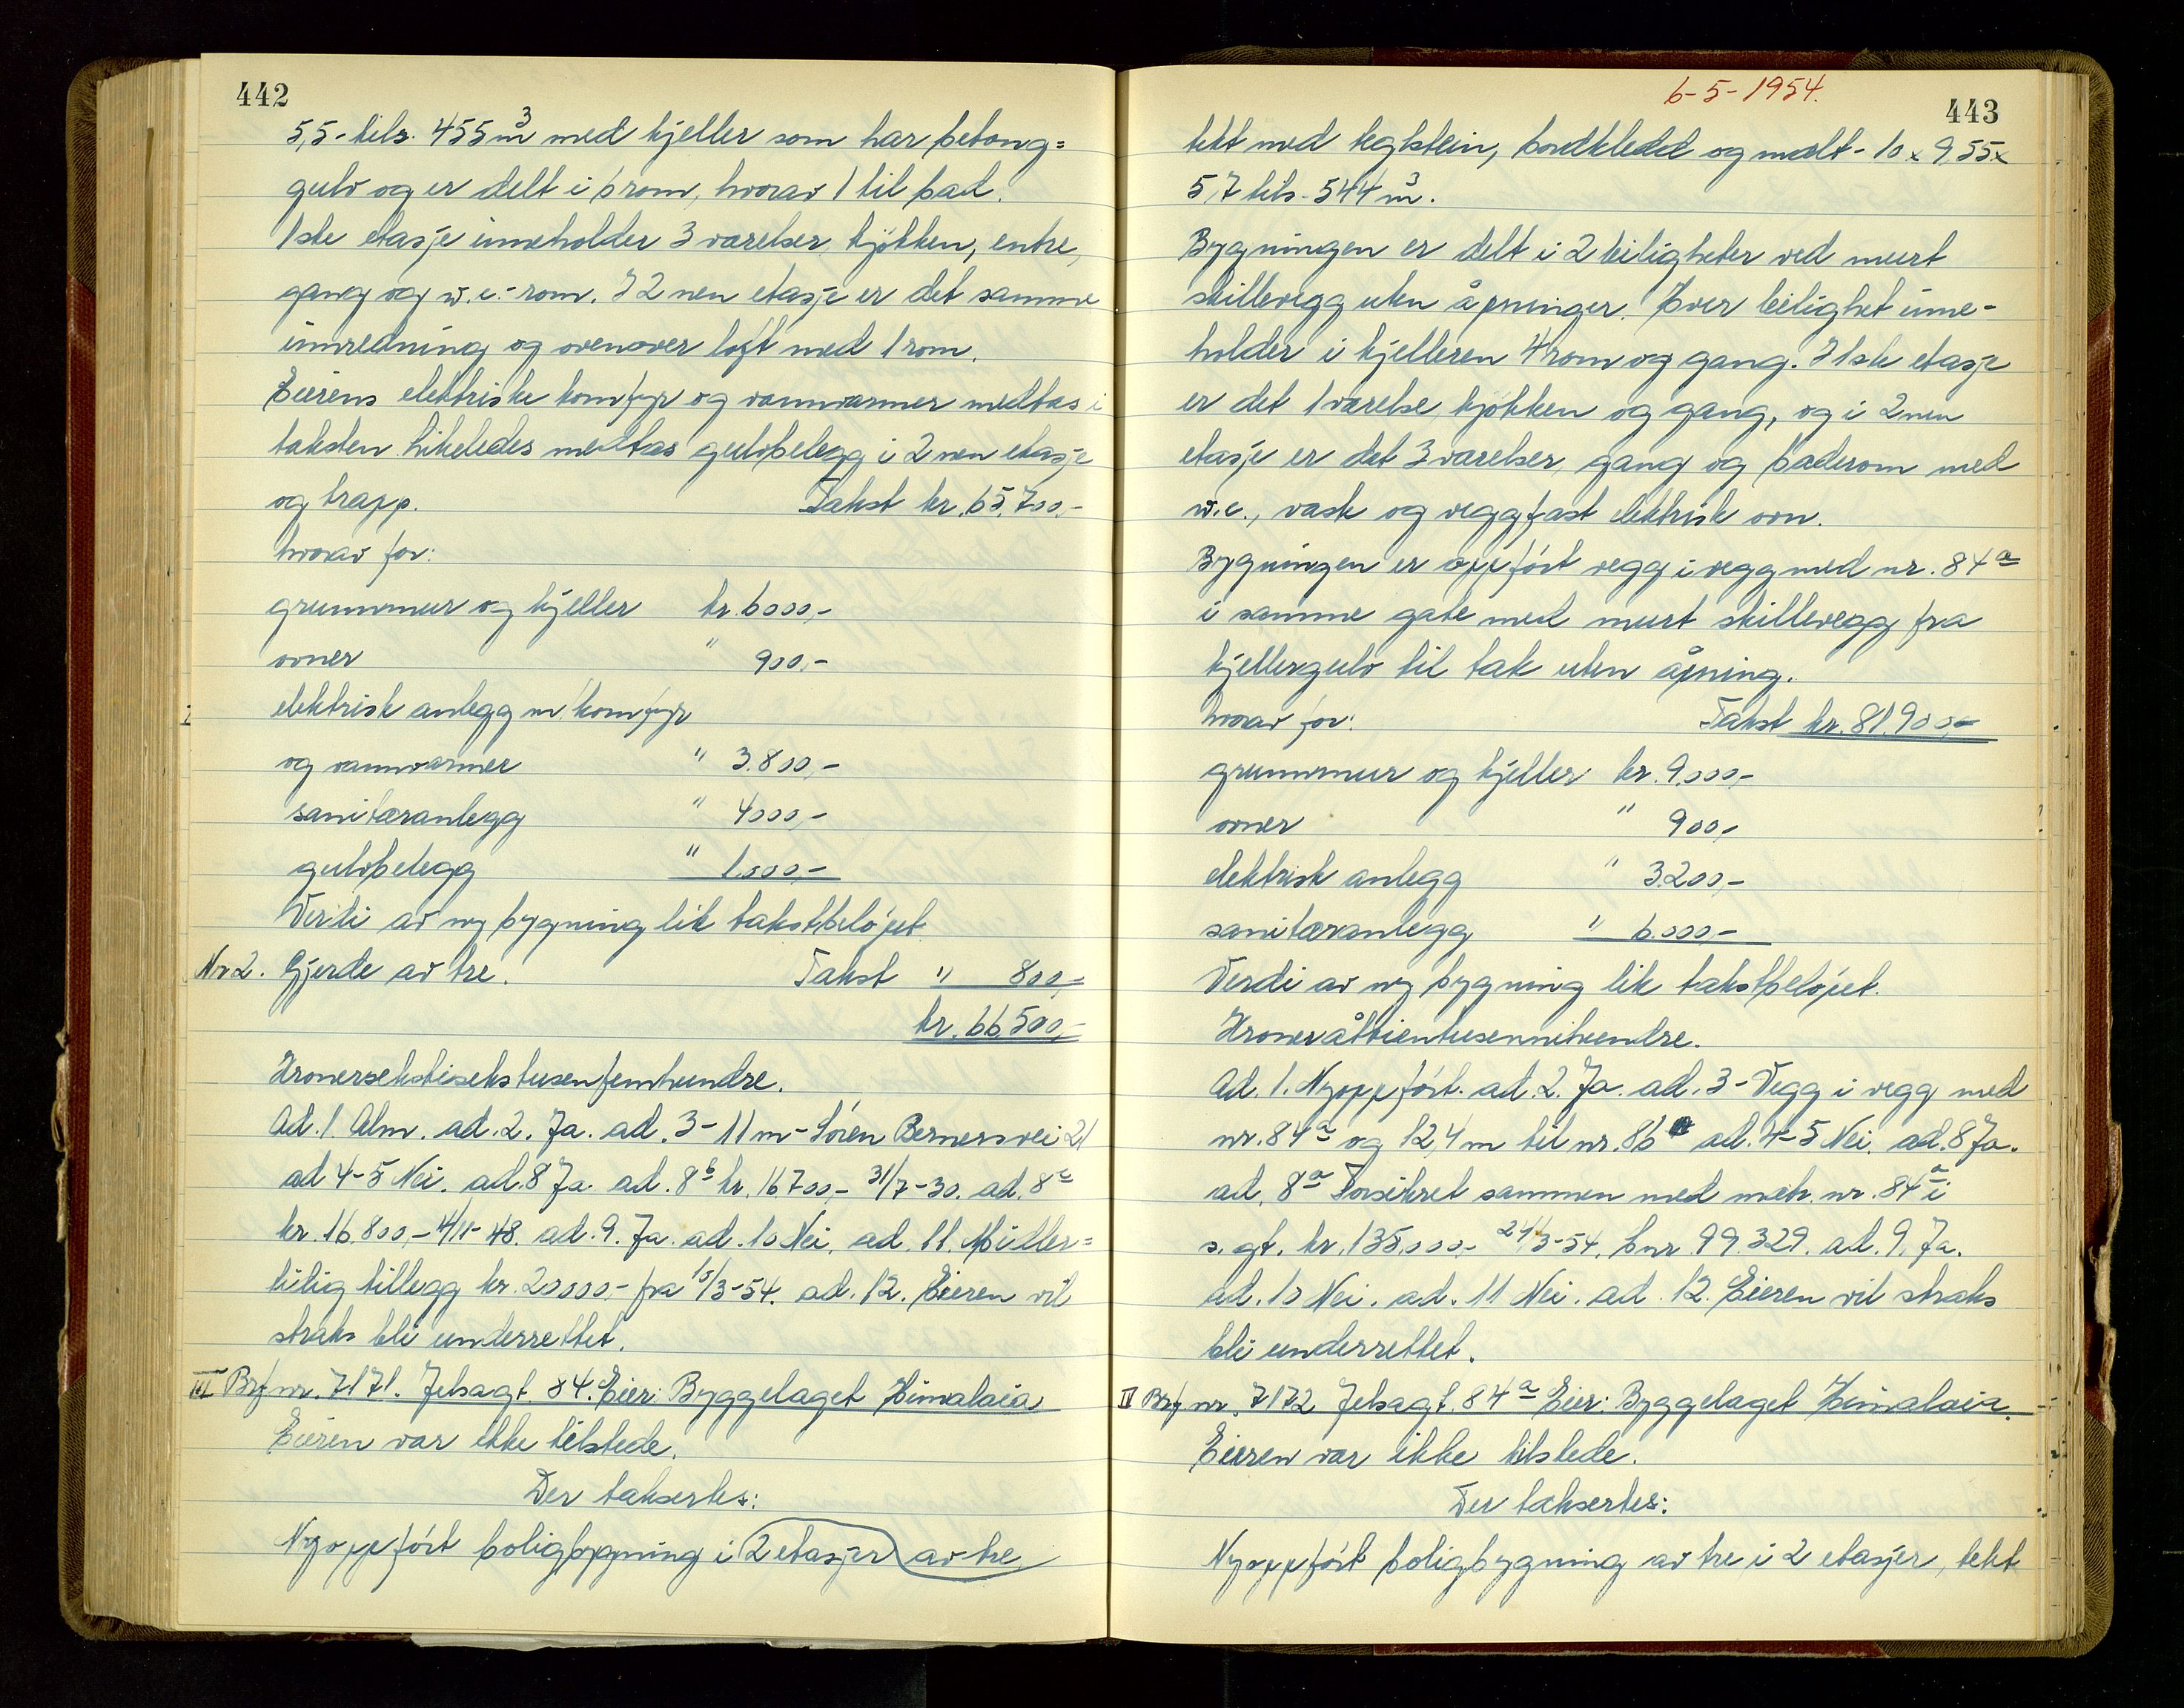 442
5,5 - tils. 455 m³ med kjeller som har betong=
gulv og er delt i 6 rom, hvorav 1 til bad.
1ste etasje inneholder 3 værelser, kjøkken, entre,
gang og w.c.- rom. I 2 nen etasje er det samme
innredning og ovenover loft med 1 rom.
Eierens elektriske komfyr og vannvarmer medtas i
taksten likeledes medtas gulvbelegg i 2 nen etasje
og trapp. Takst kr. 65.700,-
hvorav for:
grunnmur og kjeller kr. 6000,-
ovner " 900,-
elektrisk anlegg m/komfyr
og vannvarmer " 3.800,-
sanitæranlegg " 4000,-
gulvbelegg " 1.000,-
Verdi av ny bygning lik takstbeløpet
Nr 2. Gjerde av tre. Takst " 800,-
kr. 66.500,-
Kronersekstisekstusenfemhundre.
Ad. 1. Alm. ad. 2. Ja. ad. 3 - 11 m - Sören Berners vei 21
ad 4-5 Nei. ad. 8 Ja. ad. 8ᵇ kr. 16700,- 31/7-30. ad. 8ᶜ
kr. 16.800,- 4/11-48. ad. 9. Ja. ad. 10 Nei. ad. 11. Midler=
tidig tillegg kr. 20000,- fra 15/3-54. ad. 12. Eieren vil
straks bli underrettet.
III Brf nr. 7171. Jelsagt. 84. Eier: Byggelaget Himalaia
Eieren var ikke tilstede.
Der taksertes:
Nyoppført boligbygning i 2 etasjer av tre
6-5-1954.
443
tekt med teglstein, bordkledd og malt - 10 x 9,55 x
5,7 tils. 544 m³.
Bygningen er delt i 2 leiligheter ved murt
skillevegg uten åpninger. Hver leilighet inne-
holder i kjelleren 4 rom og gang. I 1ste etasje
er det 1 værelse, kjøkken og gang, og i 2 nen
etasje er det 3 værelser, gang og baderom med
w.c., vask og veggfast elektrisk ovn.
Bygningen er oppført vegg i vegg med nr. 84ᵃ
i samme gate med murt skillevegg fra
kjellergulv til tak uten åpning.
hvorav for: Takst kr. 81.900,-
grunnmur og kjeller kr. 9.000,-
ovner " 900,-
elektrisk anlegg " 3.200,-
sanitæranlegg " 6.000,-
Verdi av ny bygning lik takstbeløpet.
Kroneråttientusennihundre.
Ad. 1. Nyoppført. ad. 2. Ja. ad. 3 - Vegg i vegg med
nr. 84ᵃ og 12,4 m til nr. 86 ad. 4-5 Nei. ad. 8 Ja.
ad. 8ᵃ Forsikret sammen med matr. nr. 84ᵃ i
s. gt. kr. 135.000,- 24/3-54. bnr. 99.329. ad. 9. Ja.
ad. 10 Nei. ad. 11 Nei. ad. 12. Eieren vil straks
bli underrettet.
IV Brf nr. 7172 Jelsagt. 84ᵃ Eier: Byggelaget Himalaia.
Eieren var ikke tilstede.
Der taksertes:
Nyoppført boligbygning av tre i 2 etasjer, tekt